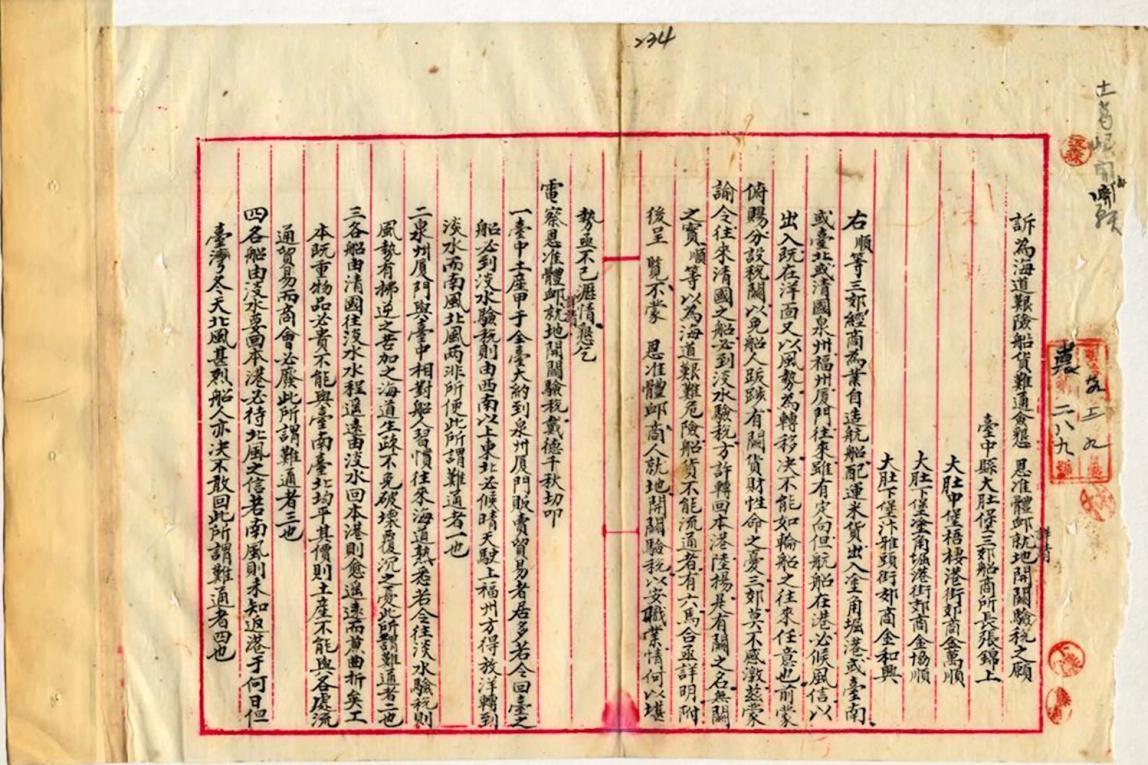 234
土葛堀開
訴為海道艱險船貨難通僉懇 恩准體邮就地開關驗税之願
臺中縣大肚堡三郊船商所長張錦上
大肚中堡梧棲港街郊商金萬順
大肚下堡塗角堀港街郊商金協順
大肚下堡汴雅頭街郊商金和興
右順等三郊經商為業自造航船配運米貨出入塗角堀港或臺南
或臺北或清國泉州福州厦門往來雖有定向但航船在港必候風信以
出入既在洋面又以風勢為轉移决不能如輪船之往來任意也前蒙
俯賜分設税關以免船人跋跡有關貨財性命之憂三郊莫不感激兹蒙
諭令往來清國之船必到淡水驗税方許轉回本港陸揚是有關之名無關
之實順等以為海道艱難危險船貨不能流通者有六焉合亟詳明附
後呈 覽不蒙 恩准體邮商人就地開關驗税以安職業情何以堪
勢無不已瀝情懇乞
電察恩准體邮就地開關驗税戴德千秋切叩
一臺中土産甲于全臺大約到泉州厦門販賣貿易者居多若令回臺之
船必到淡水驗税則由西南以上東北必候晴天駛上福州方得放洋轉到
淡水而南風北風两非所便此所謂難通者一也
二泉州厦門與臺中相對船人習慣往來海道熟悉若令往淡水驗税則
風勢有拂逆之苦加之海道生疎不免破壞覆沉之憂此所謂難通者二也
三各船由清國往淡水水程遥遠由淡水回本港則愈遥遠而䕕曲折矣工
本既重物品必貴不能與臺南臺北均平其價則土産不能與各處流
通貿易而商會必廢此所謂難通者三也
四各船由淡水要回本港必待北風之信若南風則未知返港于何日但
臺灣冬天北風甚烈船人亦决不敢回此所謂難通者四也